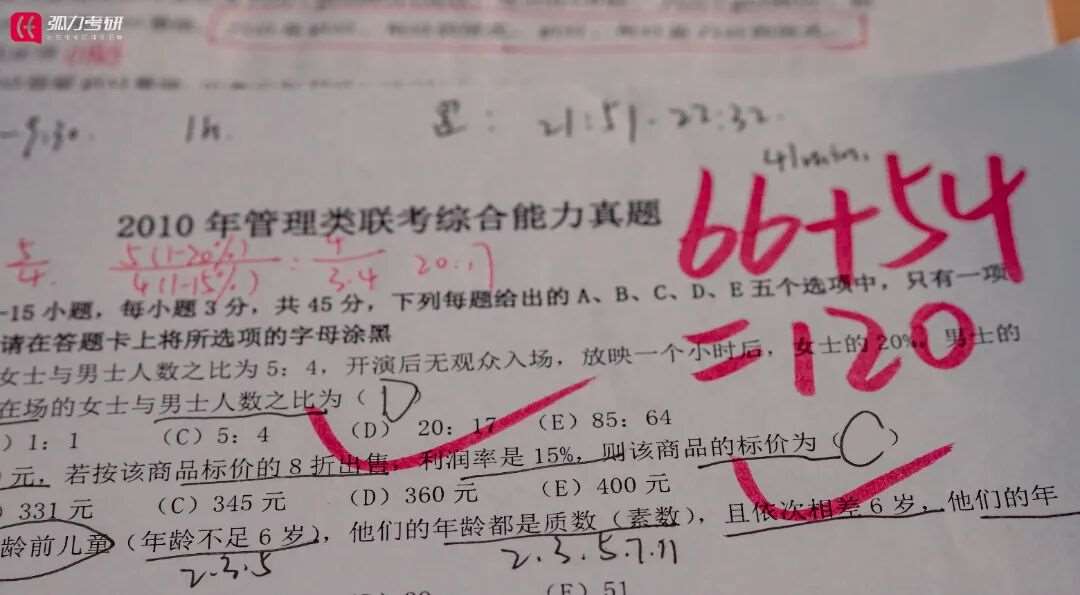 弧力考研
-9:30. 1h. : 21:51-22:32.
41min.
66+54
=120
2010年管理类联考综合能力真题
5/4 5(1-20%)/4(1-15%) : 4/3.4 20:17
-15小题，每小题3分，共45分，下列每题给出的A、B、C、D、E五个选项中，只有一项
请在答题卡上将所选项的字母涂黑
女士与男士人数之比为5：4，开演后无观众入场，放映一个小时后，女士的20%，男士的
在场的女士与男士人数之比为（D）
）1：1 （C）5：4 （D） 20：17 （E）85：64
元，若按该商品标价的8折出售，利润率是15%，则该商品的标价为（C）
）331元 （C）345元 （D）360元 （E）400元
龄前儿童（年龄不足6岁），他们的年龄都是质数（素数），且依次相差6岁，他们的年
2.3.5 2.3.5.7.11
（E）51